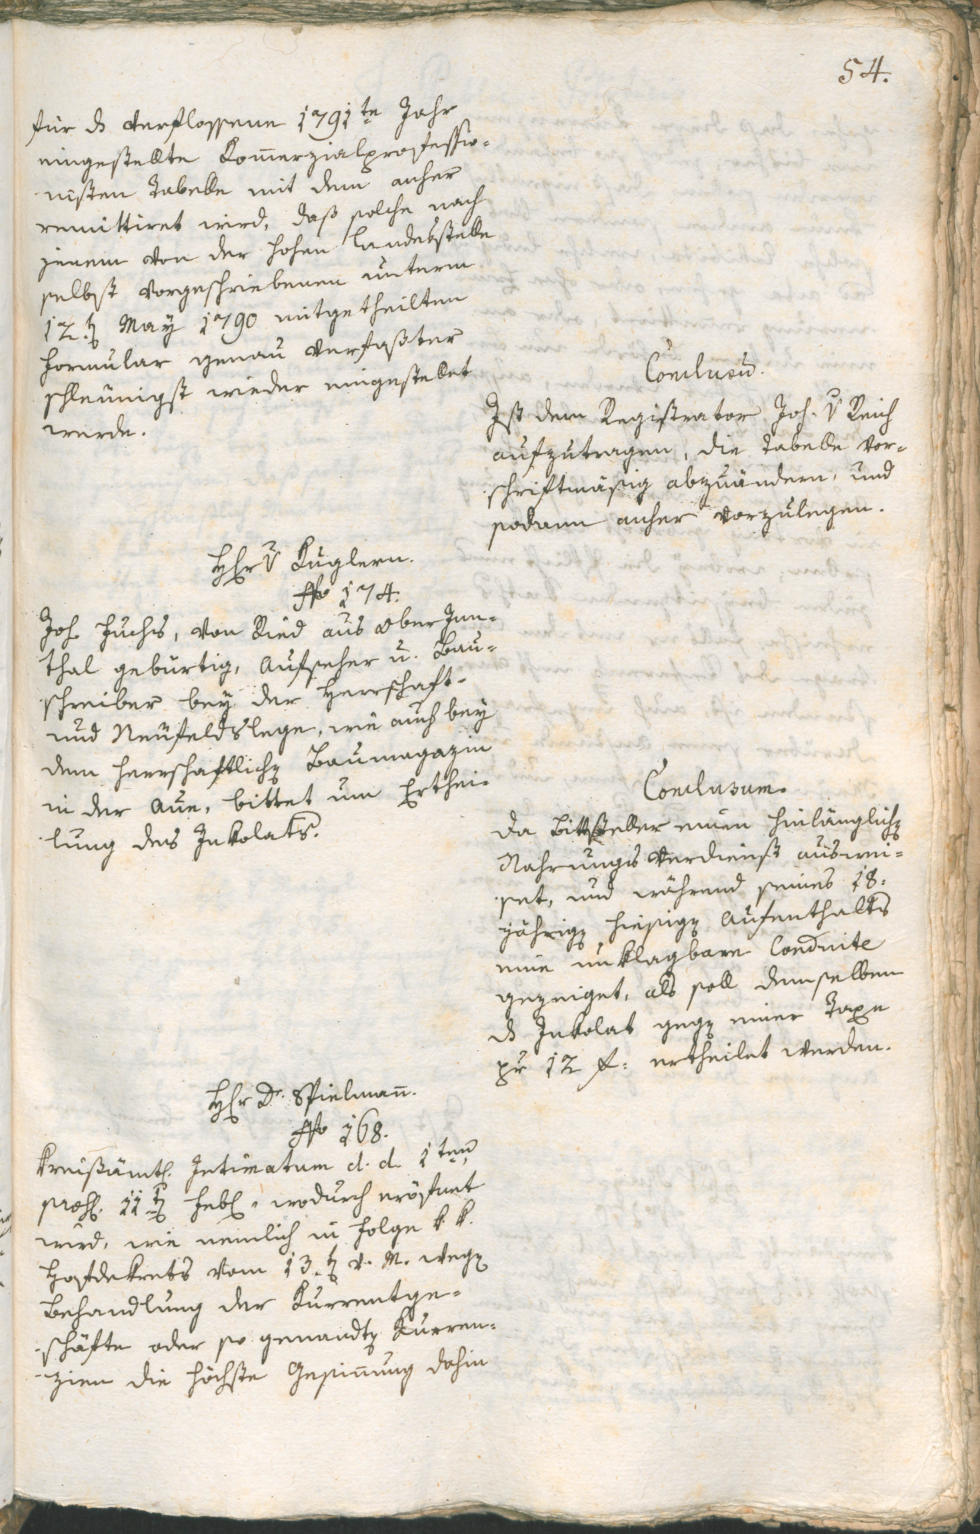 54.
für ds verflossene 1791te Jahr
eingestellte Kom̄erzialprofessio-
nisten Tabelle mit dem anher
remittiret wird, daß solche nach
jenem von der hohen Landesstelle
selbst vorgeschriebenen unterm
12.t May 1790 mitgetheilten
Formular genau verfaßter
schleunigst wieder eingestellet
werde.
Conclusū.
Ist dem Registrator Joh. v Reich
aufzutragen, die Tabelle vor-
schriftmäßig abzuändern, und
sodann anher vorzulegen.
Hhr v Kuglern.
No 174.
Joh. Fuchs, von Ried aus Ober Inn-
thal gebürtig, Aufseher u. Bau-
schreiber bey der Herrschaft-
und Neufeldslege, wie auch bey
dem herrschaftlichen Baumagazin
in der Aue, bittet um Erthei-
lung des Inkolats.
Conclusum.
Da Bittsteller einen hinlänglichen
Nahrungs Verdienst auswei-
set, und während seines 18.
jährigen hiesigen Aufenthalts
eine unklagbare Conduite
gezeiget, als soll demselben
ds Inkolat gegen einer Taxe
pr 12 f. ertheilet werden.
Hhr Dr. Spielmañ.
No 168.
Kreisämtl. Intimatum d. d. 1ten
præs. 11t Feb., wodurch eröfnet
wird, wie nemlich in Folge k k.
Hofdekrets vom 13.t v. M. wegen
Behandlung der Kurrentge-
schäfte oder so genandten Kurren-
zien die höchste Gesin̄ung dahin